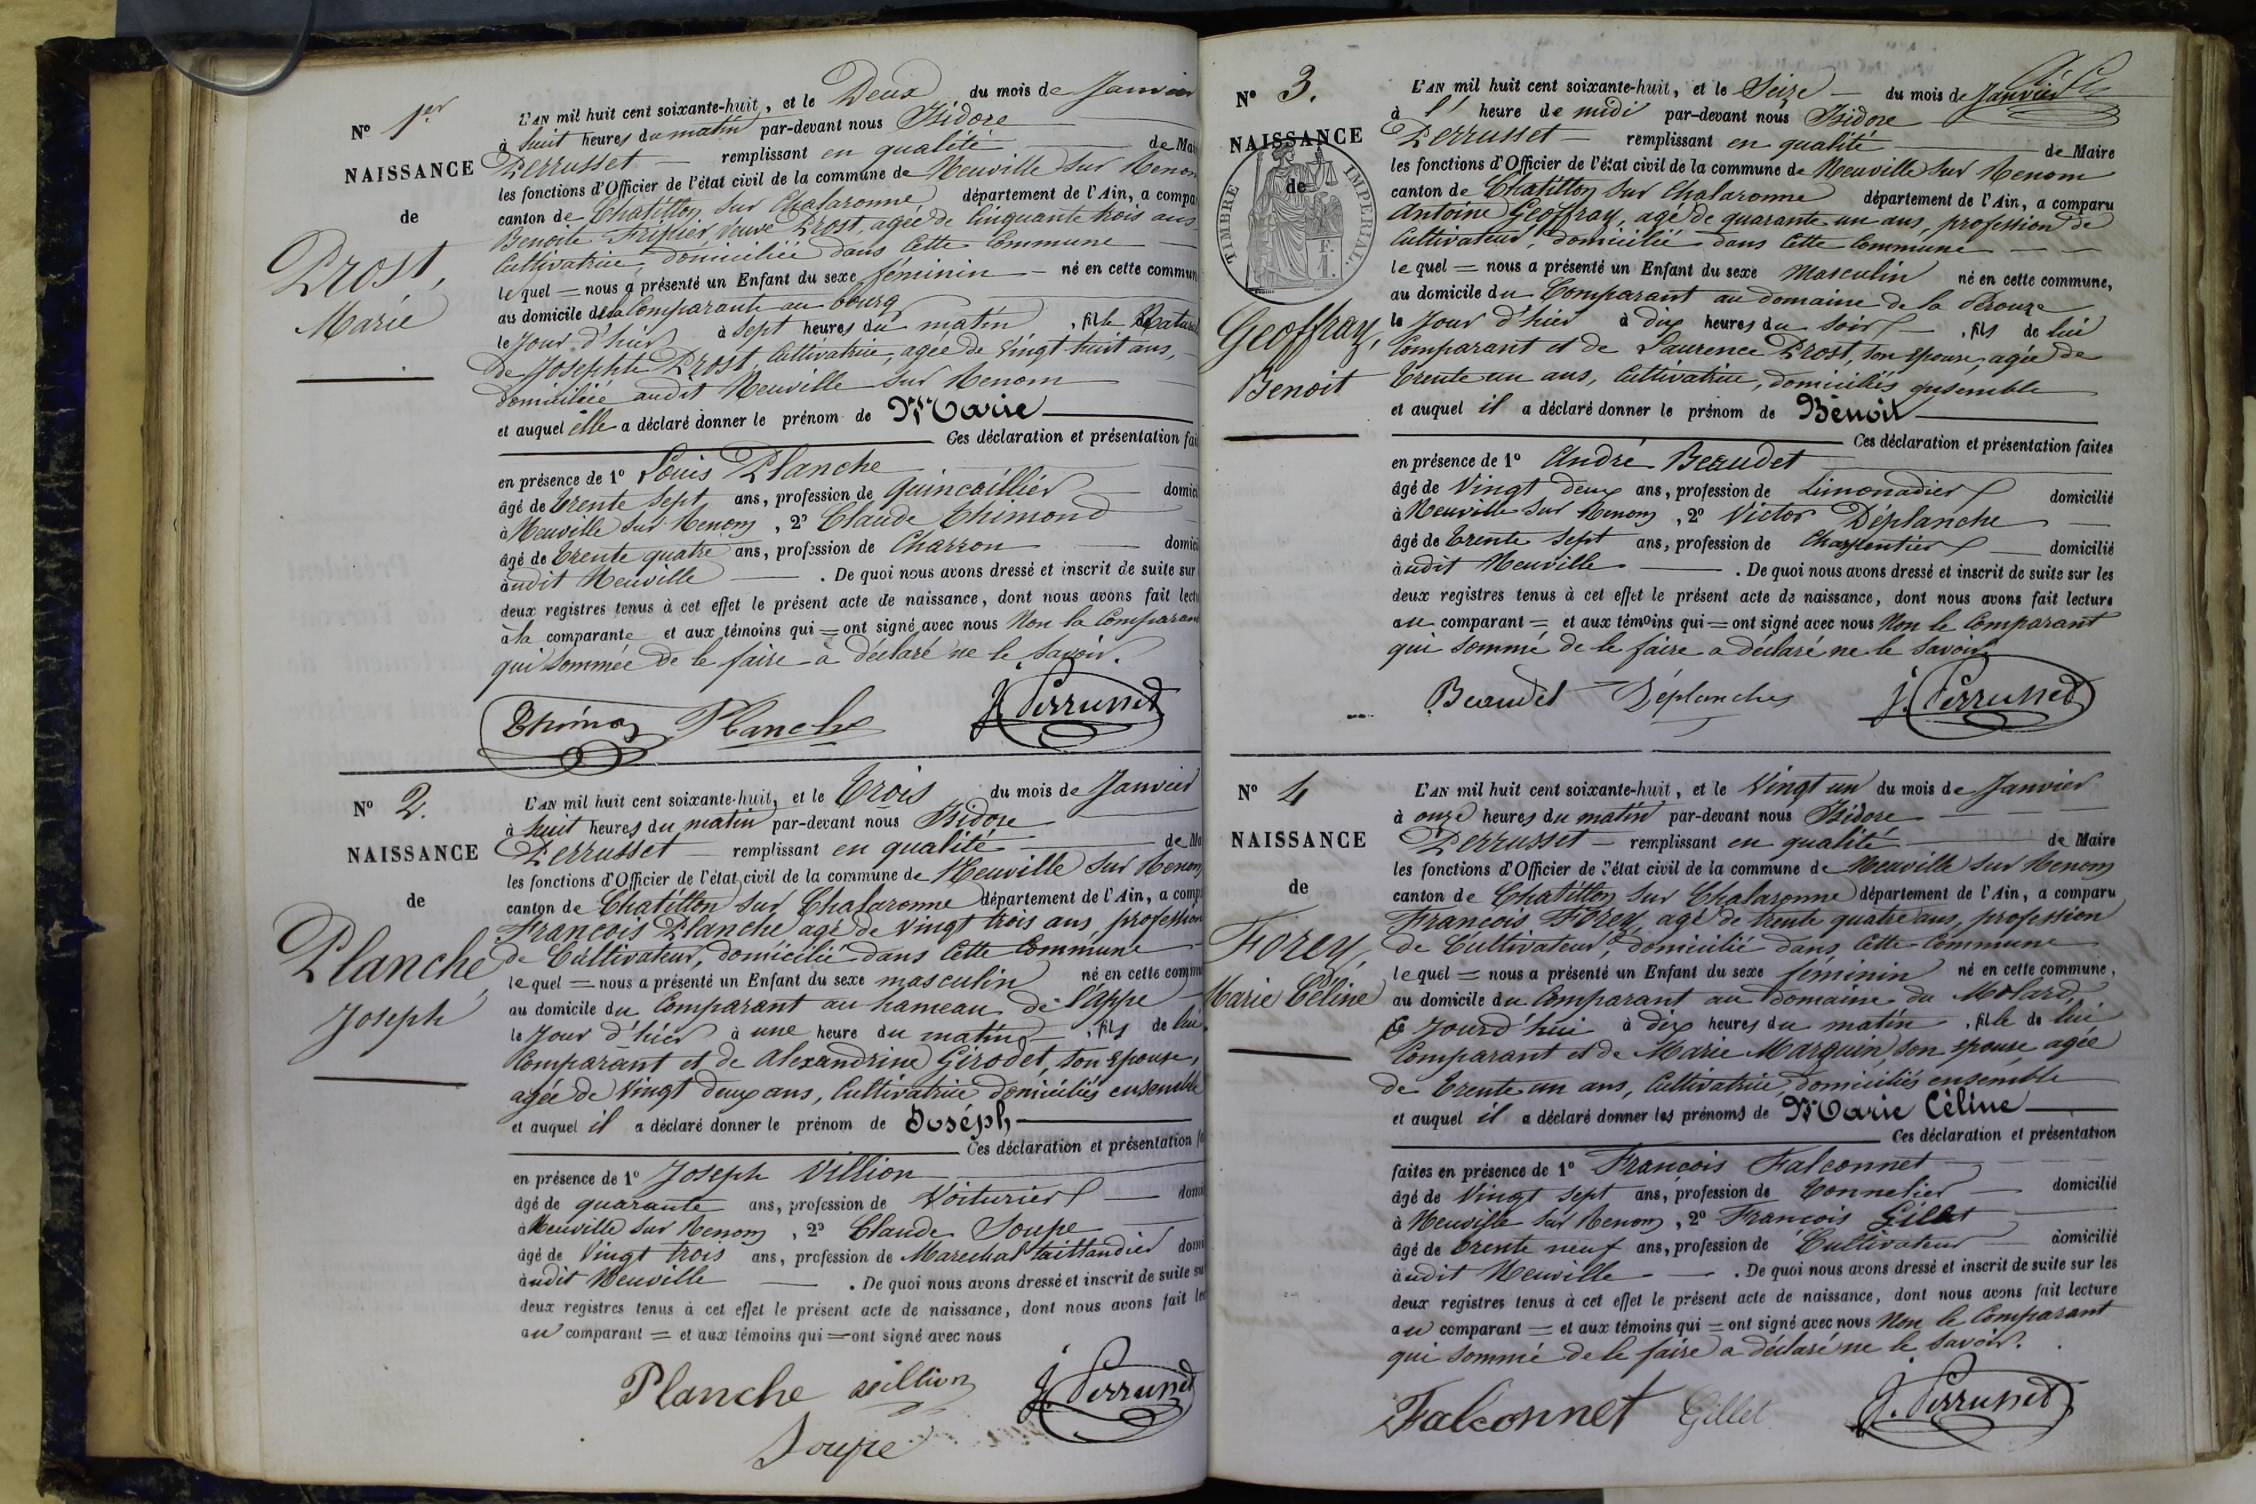 Nº 1er
NAISSANCE
de
Prost,
Marie
L'AN mil huit cent soixante-huit, et le Deux du mois de Janvier
à huit heures du matin par-devant nous Isidore
Perrusset remplissant en qualité de Mai
les fonctions d'Officier de l'état civil de la commune de Neuville sur Renom
canton de Chatillon sur Chalaronne département de l'Ain, a compa
Benoite Fripier, veuve Prost, agée de Cinquante trois ans
Cultivatrice, domiciliée dans Cette Commune
lequel = nous a présenté un Enfant du sexe féminin né en cette commun
au domicile de la Comparante au bourg
le Jour d'hier à sept heures du matin, fille Naturel
de Josephte Prost Cultivatrice, agée de Vingt huit ans,
domiciliée audit Neuville sur Renom
et auquel elle a déclaré donner le prénom de Marie
Ces déclaration et présentation fai
en présence de 1º Louis Planche
âgé de trente sept ans, profession de quincaillier domici
à Neuville sur Renom, 2º Claude Thimond
âgé de trente quatre ans, profession de Charron domici
audit Neuville. De quoi nous avons dressé et inscrit de suite sur
deux registres tenus à cet effet le présent acte de naissance, dont nous avons fait lectu
à la comparante et aux témoins qui = ont signé avec nous Non la Comparan
qui sommée de le faire à déclaré ne le savoir.
Planche J. Perrusset
Nº 2.
NAISSANCE
de
Planche,
Joseph
L'AN mil huit cent soixante-huit, et le trois du mois de Janvier
à huit heures du matin par-devant nous Isidore
Perrusset remplissant en qualité de Ma
les fonctions d'Officier de l'état civil de la commune de Neuville sur Renom
canton de Chatillon sur Chalaronne département de l'Ain, a comp
François Planche agé de vingt trois ans, profession
de Cultivateur, domicilié dans Cette Commune
lequel = nous a présenté un Enfant du sexe masculin né en cette commu
au domicile du Comparant au hameau de l'appe
le Jour d'hier à une heure du matin, fils de lui
Comparant et de Alexandrine Girodet, son épouse,
agée de Vingt deux ans, Cultivatrice domiciliés ensemble
et auquel il a déclaré donner le prénom de Joséph
Ces déclaration et présentation fa
en présence de 1º Joseph Villion
âgé de quarante ans, profession de Voiturier domi
à Neuville sur Renom, 2º Claude Soupe
âgé de Vingt trois ans, profession de Marechal taillandier domi
audit Neuville. De quoi nous avons dressé et inscrit de suite su
deux registres tenus à cet effet le présent acte de naissance, dont nous avons fait lec
au comparant = et aux témoins qui = ont signé avec nous
Planche villion J. Perrusset
Soupe
Nº 3.
NAISSANCE
de
TIMBRE IMPÉRIAL
Geoffray,
Benoit
L'AN mil huit cent soixante-huit, et le Seize du mois de Janvier
à l' heure de midi par-devant nous Isidore
Perrusset remplissant en qualité de Maire
les fonctions d'Officier de l'état civil de la commune de Neuville sur Renom
canton de Chatillon sur Chalaronne département de l'Ain, a comparu
Antoine Geoffray, agé de quarante un ans, profession de
Cultivateur, domicilié dans Cette Commune
lequel = nous a présenté un Enfant du sexe Masculin né en cette commune,
au domicile du Comparant au domaine de la
le Jour d'hier à dix heures du soir, fils de lui
Comparant et de Laurence Prost, son épouse, agée de
trente un ans, Cultivatrice, domiciliés ensemble
et auquel il a déclaré donner le prénom de Benoit
Ces déclaration et présentation faites
en présence de 1º André Beaudet
âgé de Vingt deux ans, profession de Limonadier domicilié
à Neuville sur Renom, 2º Victor Déplanche
âgé de trente sept ans, profession de Charpentier domicilié
audit Neuville. De quoi nous avons dressé et inscrit de suite sur les
deux registres tenus à cet effet le présent acte de naissance, dont nous avons fait lecture
au comparant = et aux témoins qui = ont signé avec nous Non le Comparant
qui sommé de le faire a déclaré ne le savoir.
Beaudet Déplanches J. Perrusset
Nº 4
NAISSANCE
de
Forey,
Marie Céline
L'AN mil huit cent soixante-huit, et le Vingt un du mois de Janvier
à onze heures du matin par-devant nous Isidore
Perrusset remplissant en qualité de Maire
les fonctions d'Officier de l'état civil de la commune de Neuville sur Renom
canton de Chatillon sur Chalaronne département de l'Ain, a comparu
François Forey, agé de trente quatre ans, profession
de Cultivateur, domicilié dans Cette Commune
lequel = nous a présenté un Enfant du sexe féminin né en cette commune,
au domicile du Comparant au domaine du Molard,
Ce Jourd'hui à dix heures du matin, fille de lui
Comparant et de Marie Marguin, son épouse agée
de trente un ans, Cultivatrice, domiciliés ensemble
et auquel il a déclaré donner les prénoms de Marie Céline
Ces déclaration et présentation
faites en présence de 1º François Falconnet
âgé de Vingt sept ans, profession de tonnelier domicilié
à Neuville sur Renom, 2º François Gillet
âgé de trente neuf ans, profession de Cultivateur domicilié
audit Neuville. De quoi nous avons dressé et inscrit de suite sur les
deux registres tenus à cet effet le présent acte de naissance, dont nous avons fait lecture
au comparant = et aux témoins qui = ont signé avec nous Non le Comparant
qui sommé de le faire a déclaré ne le savoir.
Falconnet Gillet J. Perrusset